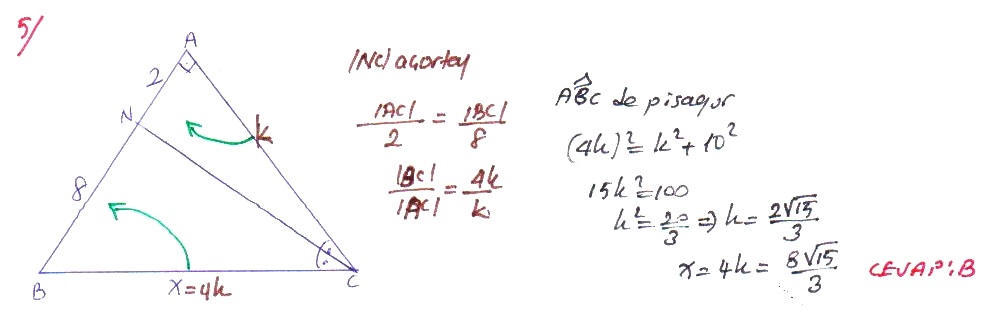 5/
A
2
N
k
8
B
x=4k
C
|NC| açıortay
|AC|/2 = |BC|/8
|BC|/|AC| = 4k/k
ABC de pisagor
(4k)²=k²+10²
15k²=100
k²=20/3 ⇒ k=2√15/3
x=4k=8√15/3
CEVAP:B